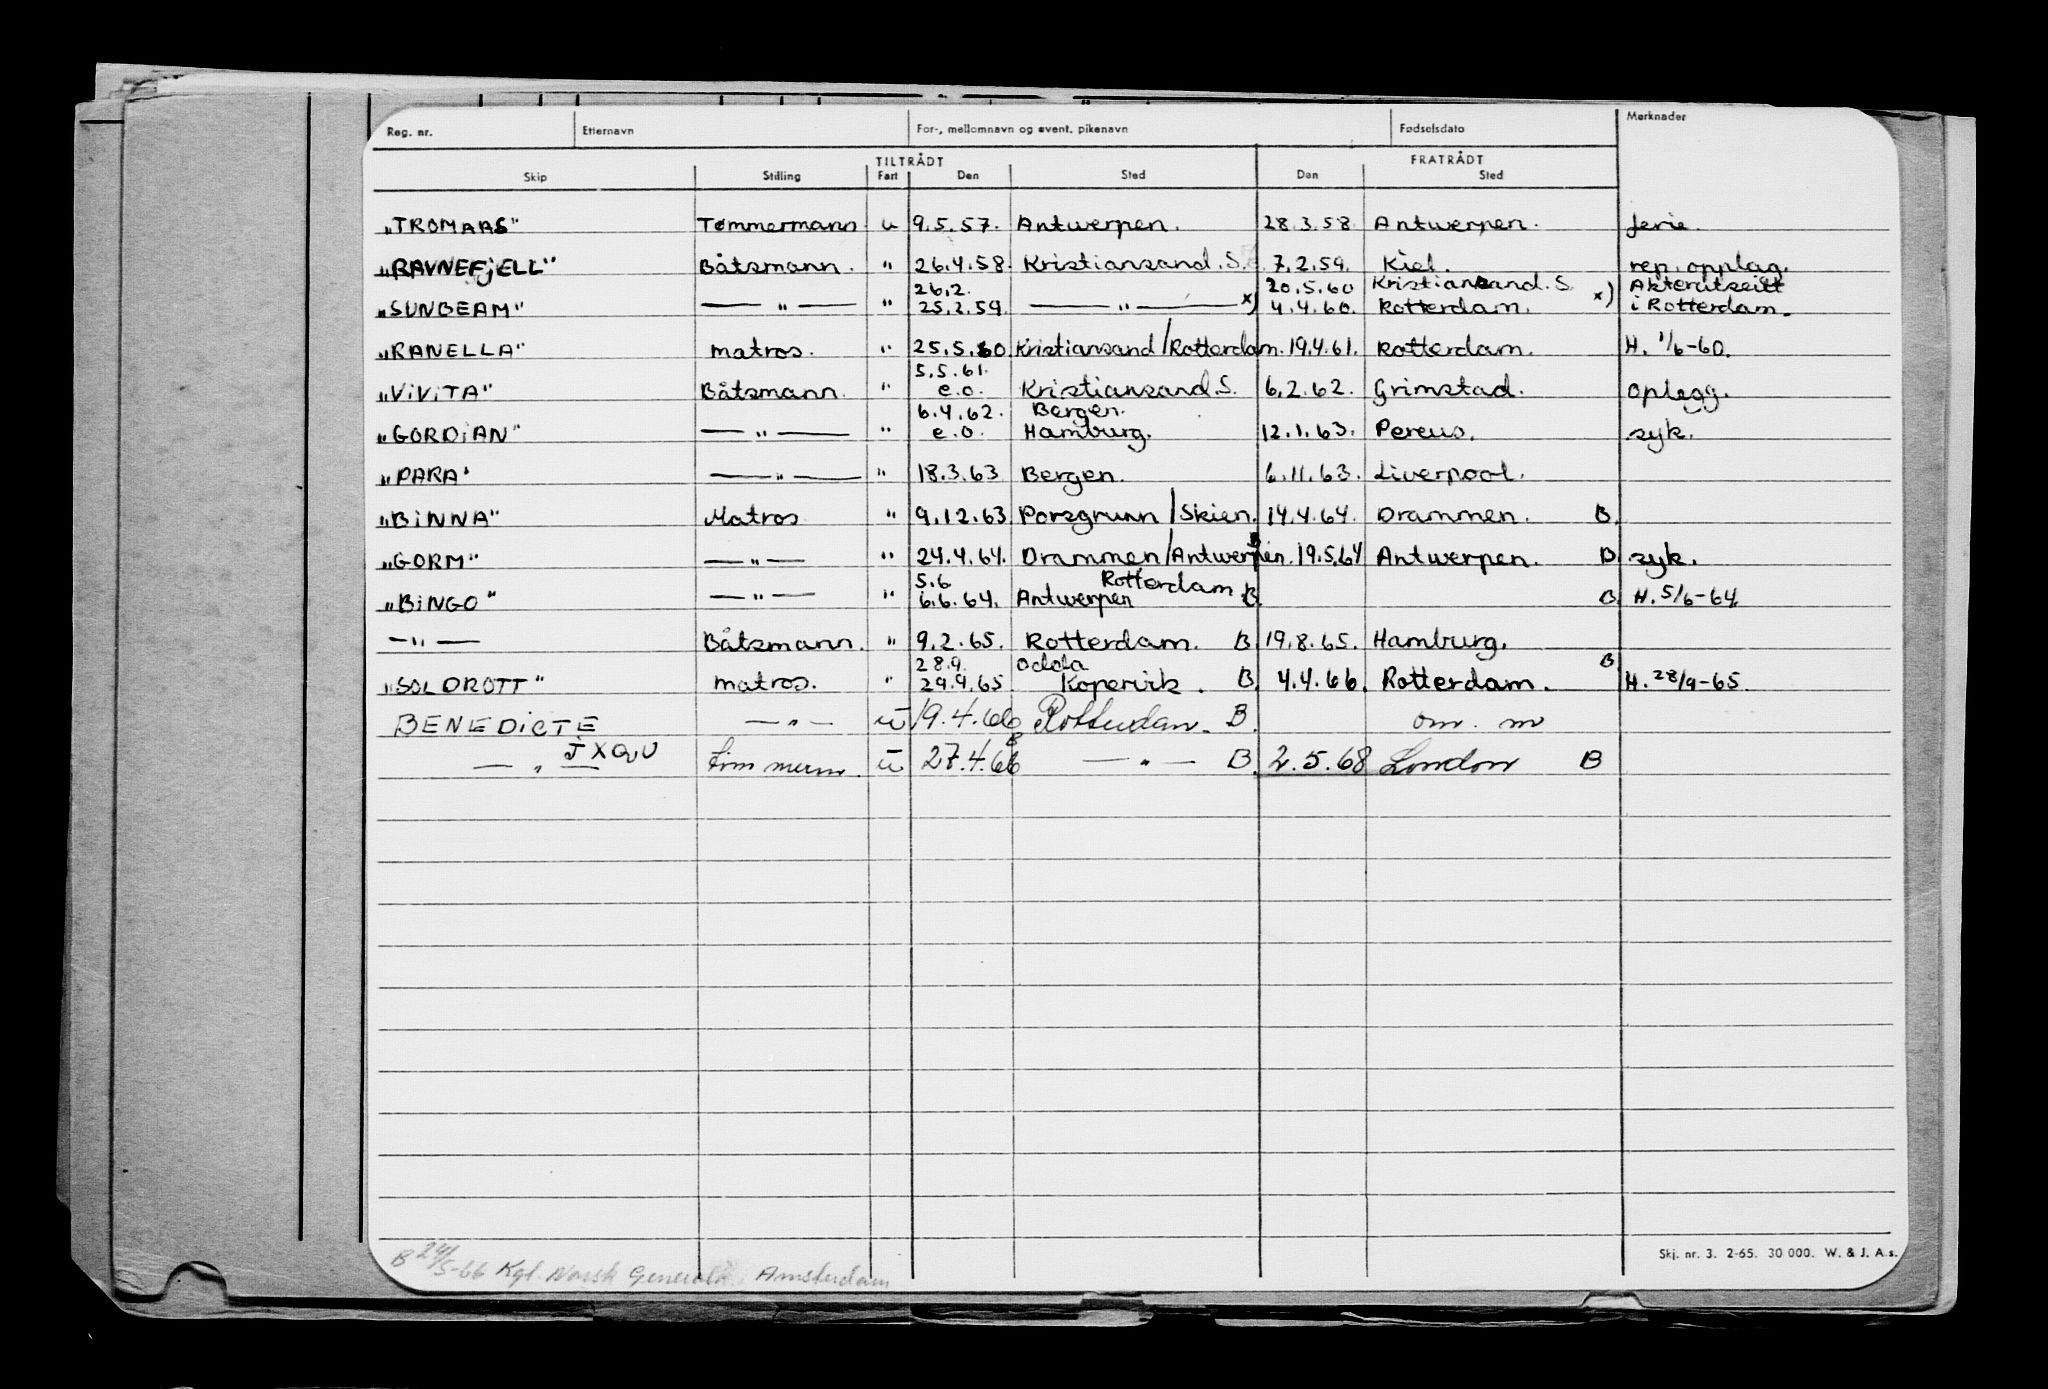 Reg. nr. Etternavn For-, mellomnavn og event. pikenavn Fødselsdato Merknader
TILTRÅDT FRATRÅDT
Skip Stilling Fart Den Sted Den Sted
"TROMAAS" Tømmermann u 9.5.57. Antwerpen. 28.3.58. Antwerpen. ferie.
"RAVNEFJELL" Båtsmann. " 26.4.58. Kristiansand.S. 7.2.59. Kiel. rep. opplag.
26.2. 20.5.60 Kristiansand.S. Akterutseilt
"SUNBEAM" — " — " 25.2.59. — " — x) 4.4.60. Rotterdam. x) i Rotterdam.
"RANELLA" matros. " 25.5.60. Kristiansand/Rotterdam. 19.4.61. Rotterdam. H. 1/6-60.
5.5.61.
"VIVITA" Båtsmann. " e.o. Kristiansand.S. 6.2.62. Grimstad. oplegg.
6.4.62. Bergen.
"GORDIAN" — " — " e.o. Hamburg. 12.1.63. Pereus. syk.
"PARA" — " — " 18.3.63 Bergen. 6.11.63. Liverpool.
"BINNA" Matros " 9.12.63. Porsgrunn/Skien. 14.4.64. Drammen. B.
"GORM" — " — " 24.4.64. Drammen/Antwerpen. B 19.5.64 Antwerpen. B syk.
5.6 Rotterdam
"BINGO" — " — " 6.6.64. Antwerpen B. B. H. 5/6-64.
— " — Båtsmann. " 9.2.65. Rotterdam. B 19.8.65. Hamburg.
28.9. Odda B
"SOLDROTT" matros. " 29.9.65. Kopervik. B. 4.4.66. Rotterdam. H. 28/9-65.
BENEDICTE — " — u 19.4.66 Rotterdam. B. om. m
JXQU B
— " — Tömmerm. u 27.4.66 — " — B. 2.5.68 London B
B 24/5-66 Kgl. Norsk Generalk. Amsterdam
Skj. nr. 3. 2-65. 30 000. W. & J. A.s.